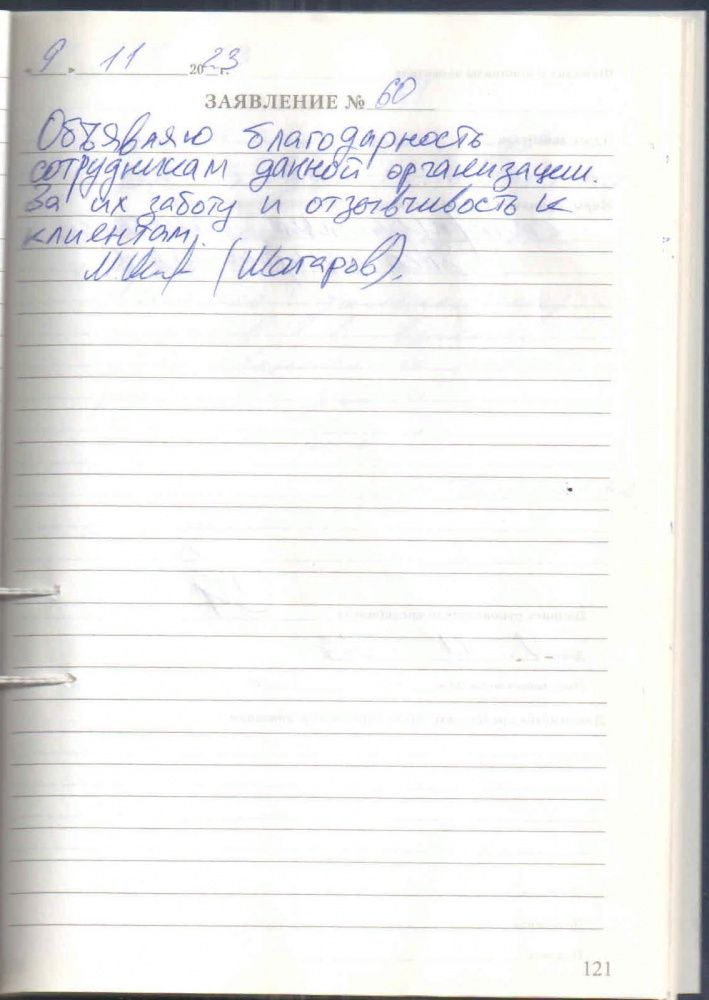 «9» 11 2023 г.
ЗАЯВЛЕНИЕ № 60
Объявляю благодарность
сотрудникам данной организации.
За их заботу и отзывчивость к
клиентам.
(Шагаров).
121